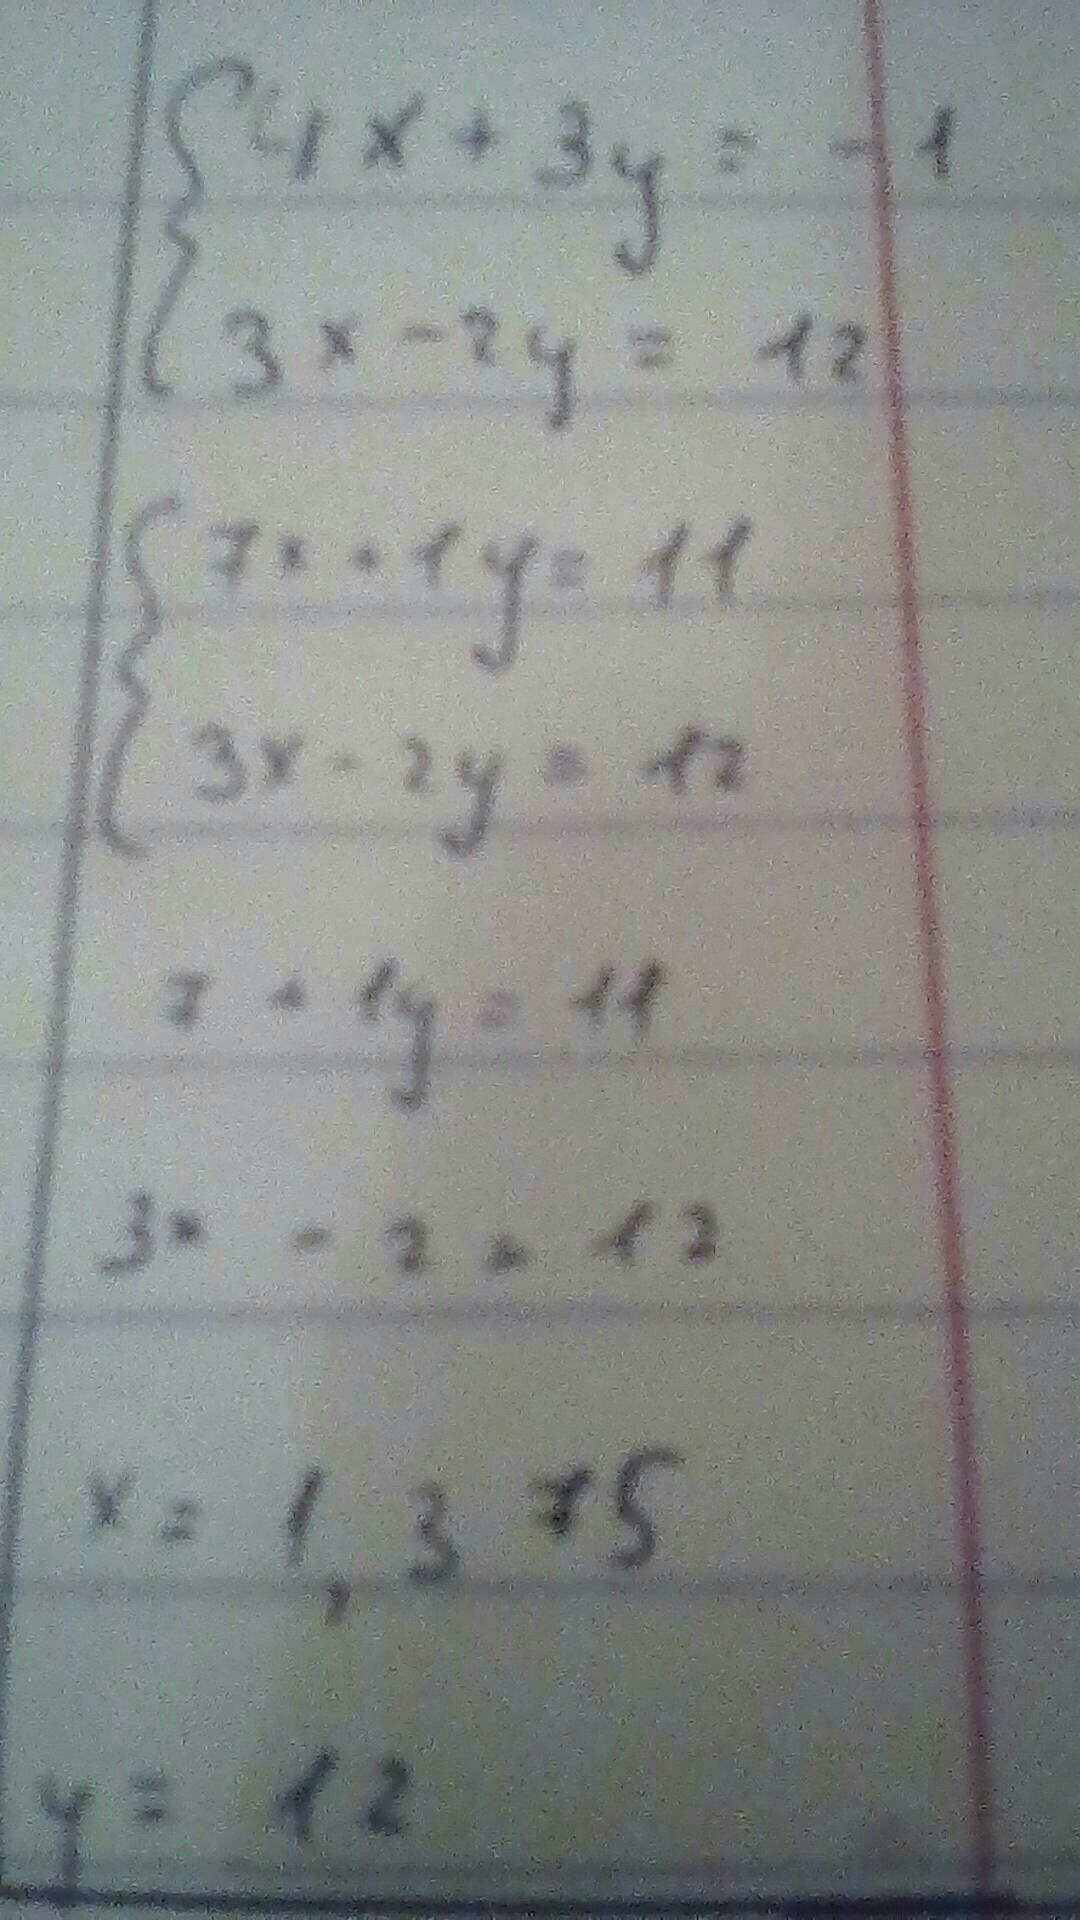 4x + 3y = - 1
3x - 2y = 12
7x + 1y = 11
3x - 2y = 12
7 + 1y = 11
3x - 2 = 12
x = 1,375
y = 12